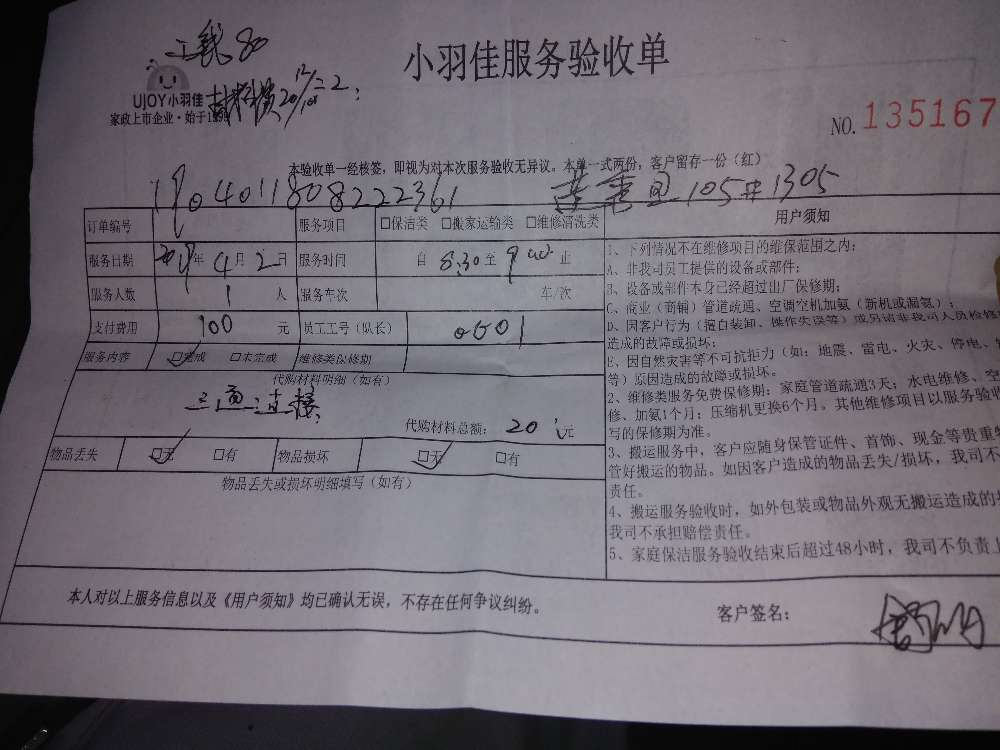 工钱80
小羽佳服务验收单
UJOY小羽佳
家政上市企业·始于1998
NO.135167
本验收单一经核签，即视为对本次服务验收无异议。本单一式两份，客户留存一份（红）
1904011808222361 105#1305
订单编号 服务项目 □保洁类 □搬家运输类 □维修清洗类
用户须知
服务日期 19年4月2日 服务时间 自8:30至9 止
服务人数 1人 服务车次 车/次
支付费用 100元 员工工号（队长） 0601
服务内容 □完成 □未完成 维修类保修期
代购材料明细（如有）
三通 直接
代购材料总额：20元
物品丢失 □无 □有 物品损坏 □无 □有
物品丢失或损坏明细填写（如有）
1、下列情况不在维修项目的维保范围之内：
A、非我司员工提供的设备或部件；
B、设备或部件本身已经超过出厂保修期；
C、商业（商铺）管道疏通、空调空机加氨（新机或漏氨）；
D、因客户行为（擅自装卸、操作失误等）或另请非我司人员检修
造成的故障或损坏；
E、因自然灾害等不可抗拒力（如：地震、雷电、火灾、停电、
等）原因造成的故障或损坏。
2、维修类服务免费保修期：家庭管道疏通3天；水电维修、空
修、加氨1个月；压缩机更换6个月。其他维修项目以服务验收
写的保修期为准。
3、搬运服务中，客户应随身保管证件、首饰、现金等贵重
管好搬运的物品。如因客户造成的物品丢失/损坏，我司不
责任。
4、搬运服务验收时，如外包装或物品外观无搬运造成的
我司不承担赔偿责任。
5、家庭保洁服务验收结束后超过48小时，我司不负责上
本人对以上服务信息以及《用户须知》均已确认无误，不存在任何争议纠纷。
客户签名：